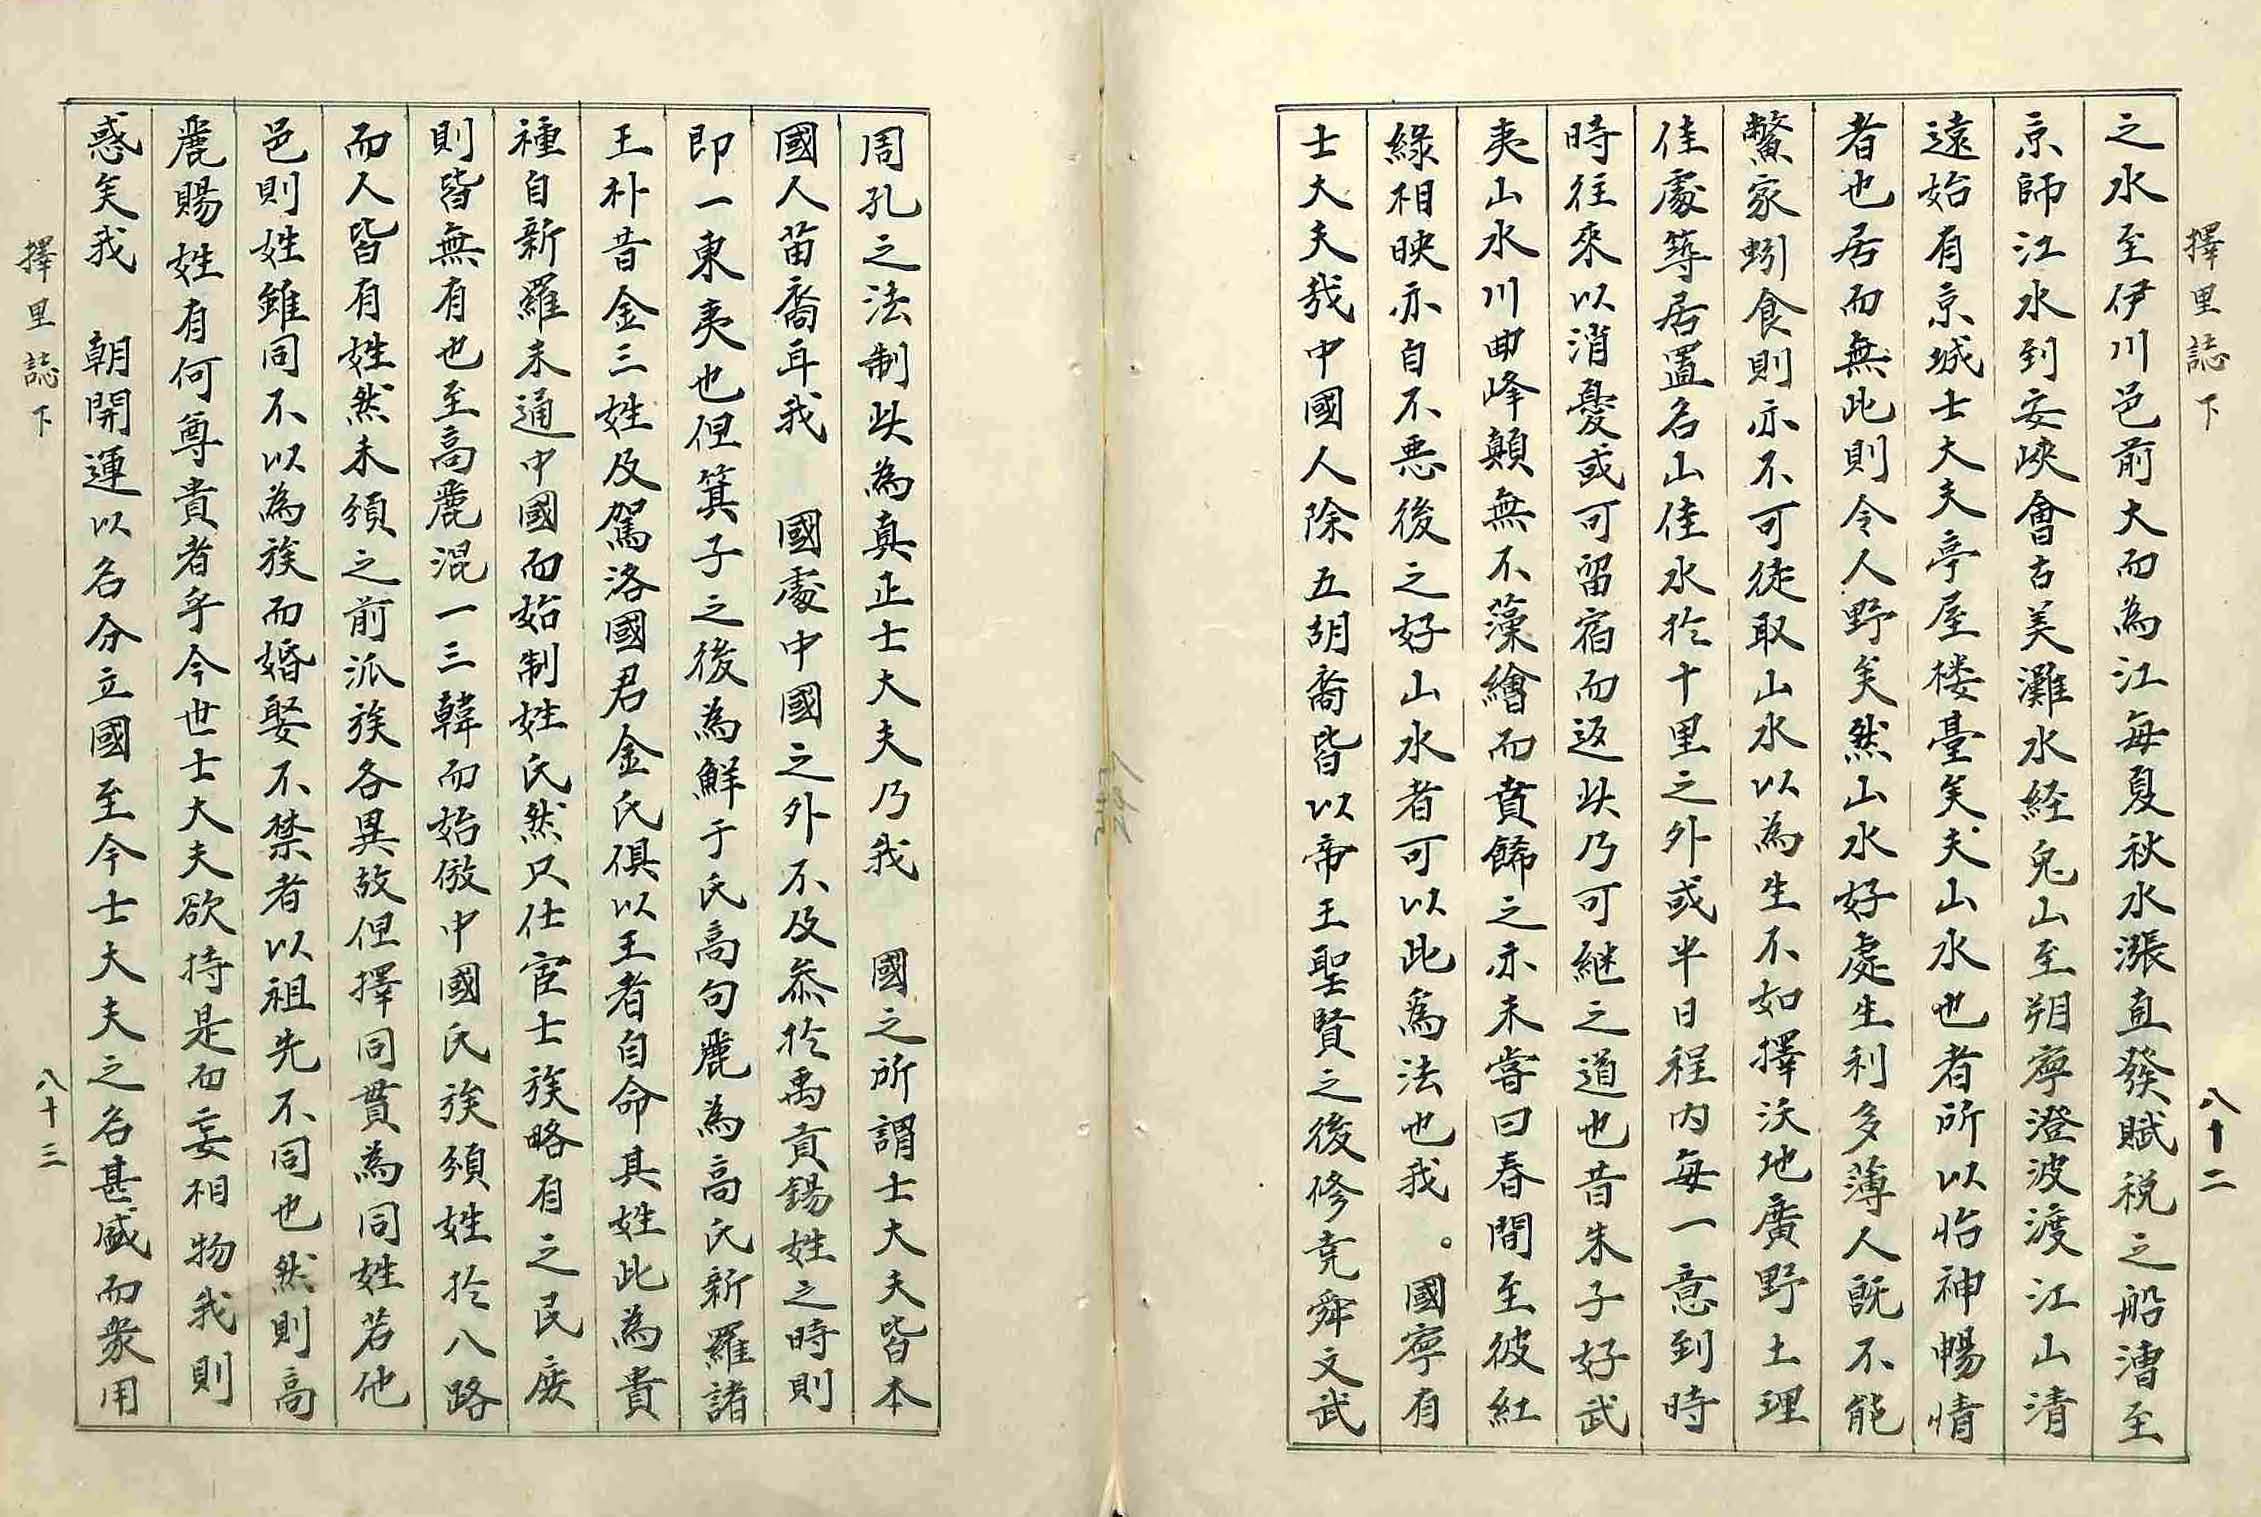 擇里誌下
八十二
之水至伊川邑前大而為江每夏秋水漲直發賦稅之船漕至
京師江水到安峽會古美灘水経兎山至朔寧澄波渡江山清
遠始有京城士大夫亭屋楼臺矣夫山水也者所以怡神暢情
者也居而無此則令人野矣然山水好處生利多薄人旣不能
鱉家蚓食則亦不可徒取山水以為生不如擇沃地廣野土理
佳處築居置名山佳水於十里之外或半日程內每一意到時
時往來以消憂或可留宿而返此乃可継之道也昔朱子好武
夷山水川曲峰顛無不藻繪而賁餙之亦未嘗曰春間至彼紅
綠相映亦自不悪後之好山水者可以此為法也我。國寧有
士大夫哉中國人除五胡裔皆以帝王聖賢之後修堯舜文武
周孔之法制此為真正士大夫乃我　國之所謂士大夫皆本
國人苗裔耳我　國處中國之外不及叅於禹貢錫姓之時則
即一東夷也但箕子之後為鮮于氏高句麗為高氏新羅諸
王朴昔金三姓及駕洛國君金氏俱以王者自命其姓此為貴
種自新羅未通中國而始制姓氏然只仕宦士族略有之民庶
則皆無有也至高麗混一三韓而始倣中國氏族頒姓於八路
而人皆有姓然未頒之前派族各異故但擇同貫為同姓若他
邑則姓雖同不以為族而婚娶不禁者以祖先不同也然則高
麗賜姓有何尊貴者乎今世士大夫欲持是而妄相物我則
惑矣我　朝開運以名分立國至今士大夫之名甚盛而衆用
擇里誌下
八十三